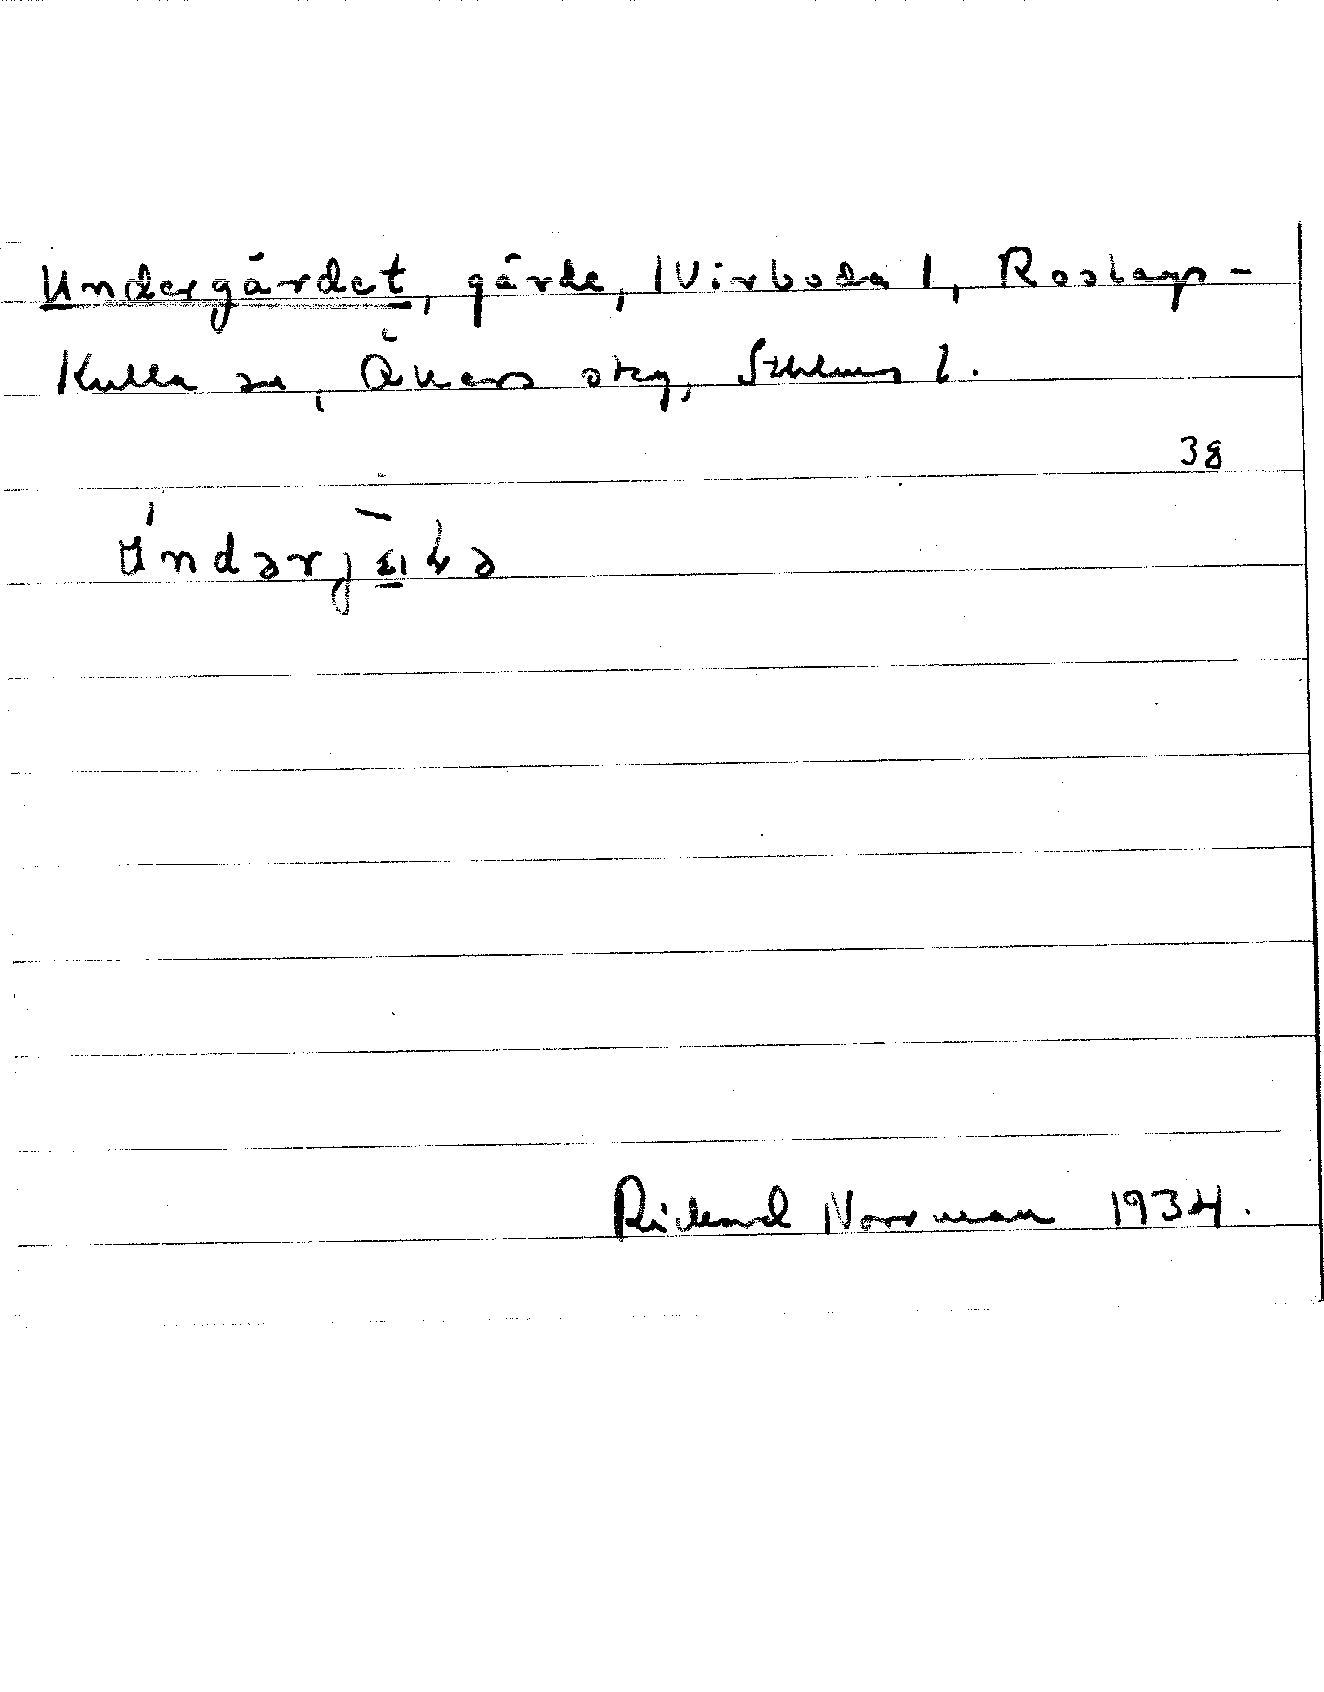 Undergärdet, gärde, Virboda 1, Roslags-
Kulla sn, Åkers skg, Sthlms l.
38
Richard Norrman 1934.